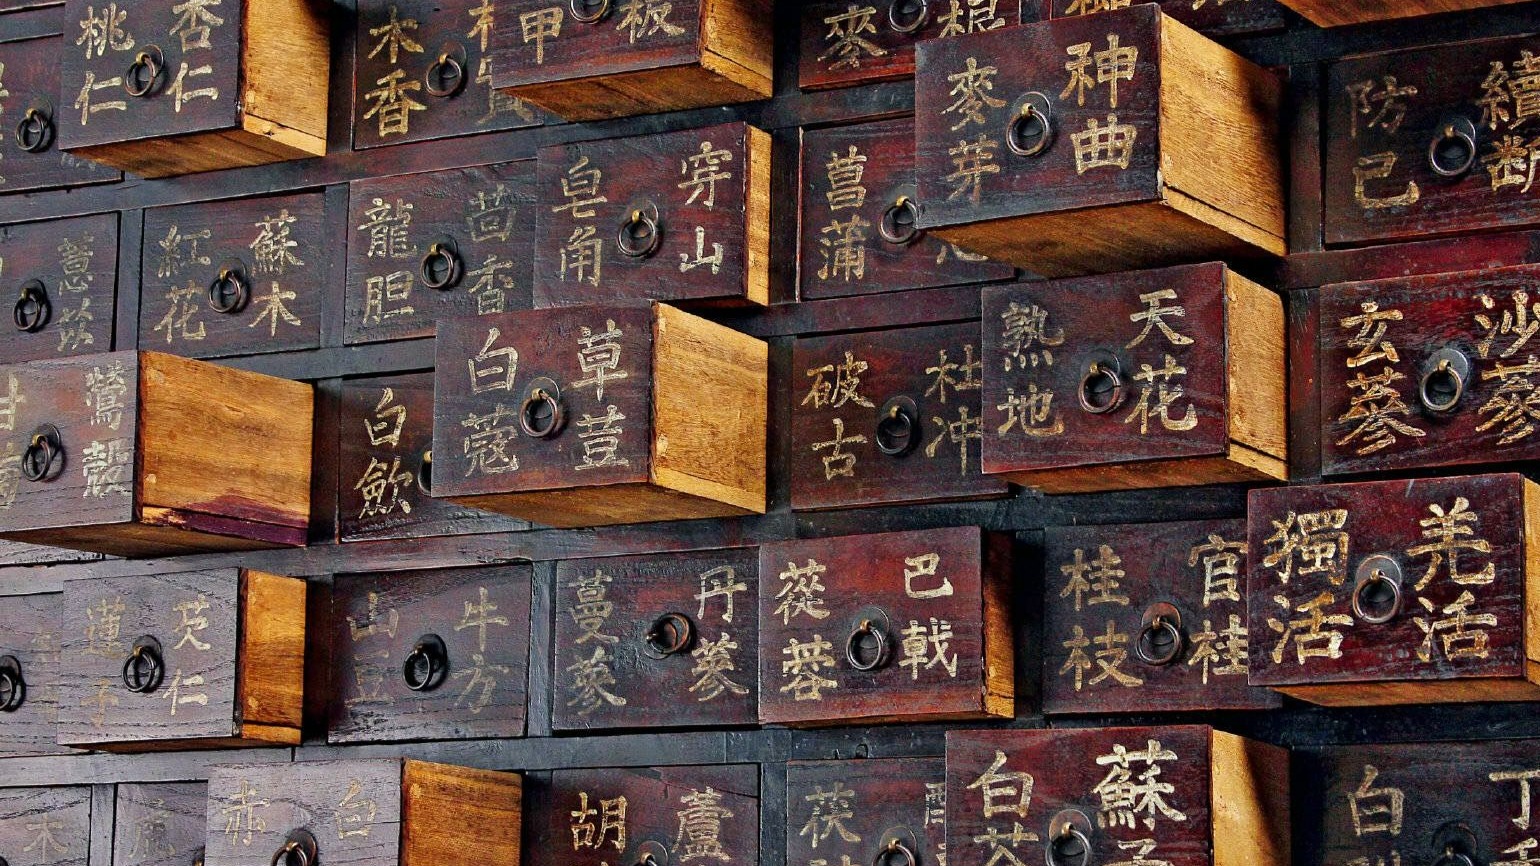 桃仁 杏仁
木香
甲 板
麥 根
麥芽 神曲
防己 續斷
薏苡
紅花 蘇木
龍胆 茴香
皂角 穿山
菖蒲
熟地 天花
玄蔘 沙蔘
甘 鶯殼
白歛
白蔻 草荳
破古 杜冲
蓮子 芡仁
山 牛方
蔓蔘 丹蔘
蓯蓉 巴戟
桂枝 官桂
獨活 羌活
木
赤 白
胡 蘆
茯
白 蘇子
白 丁